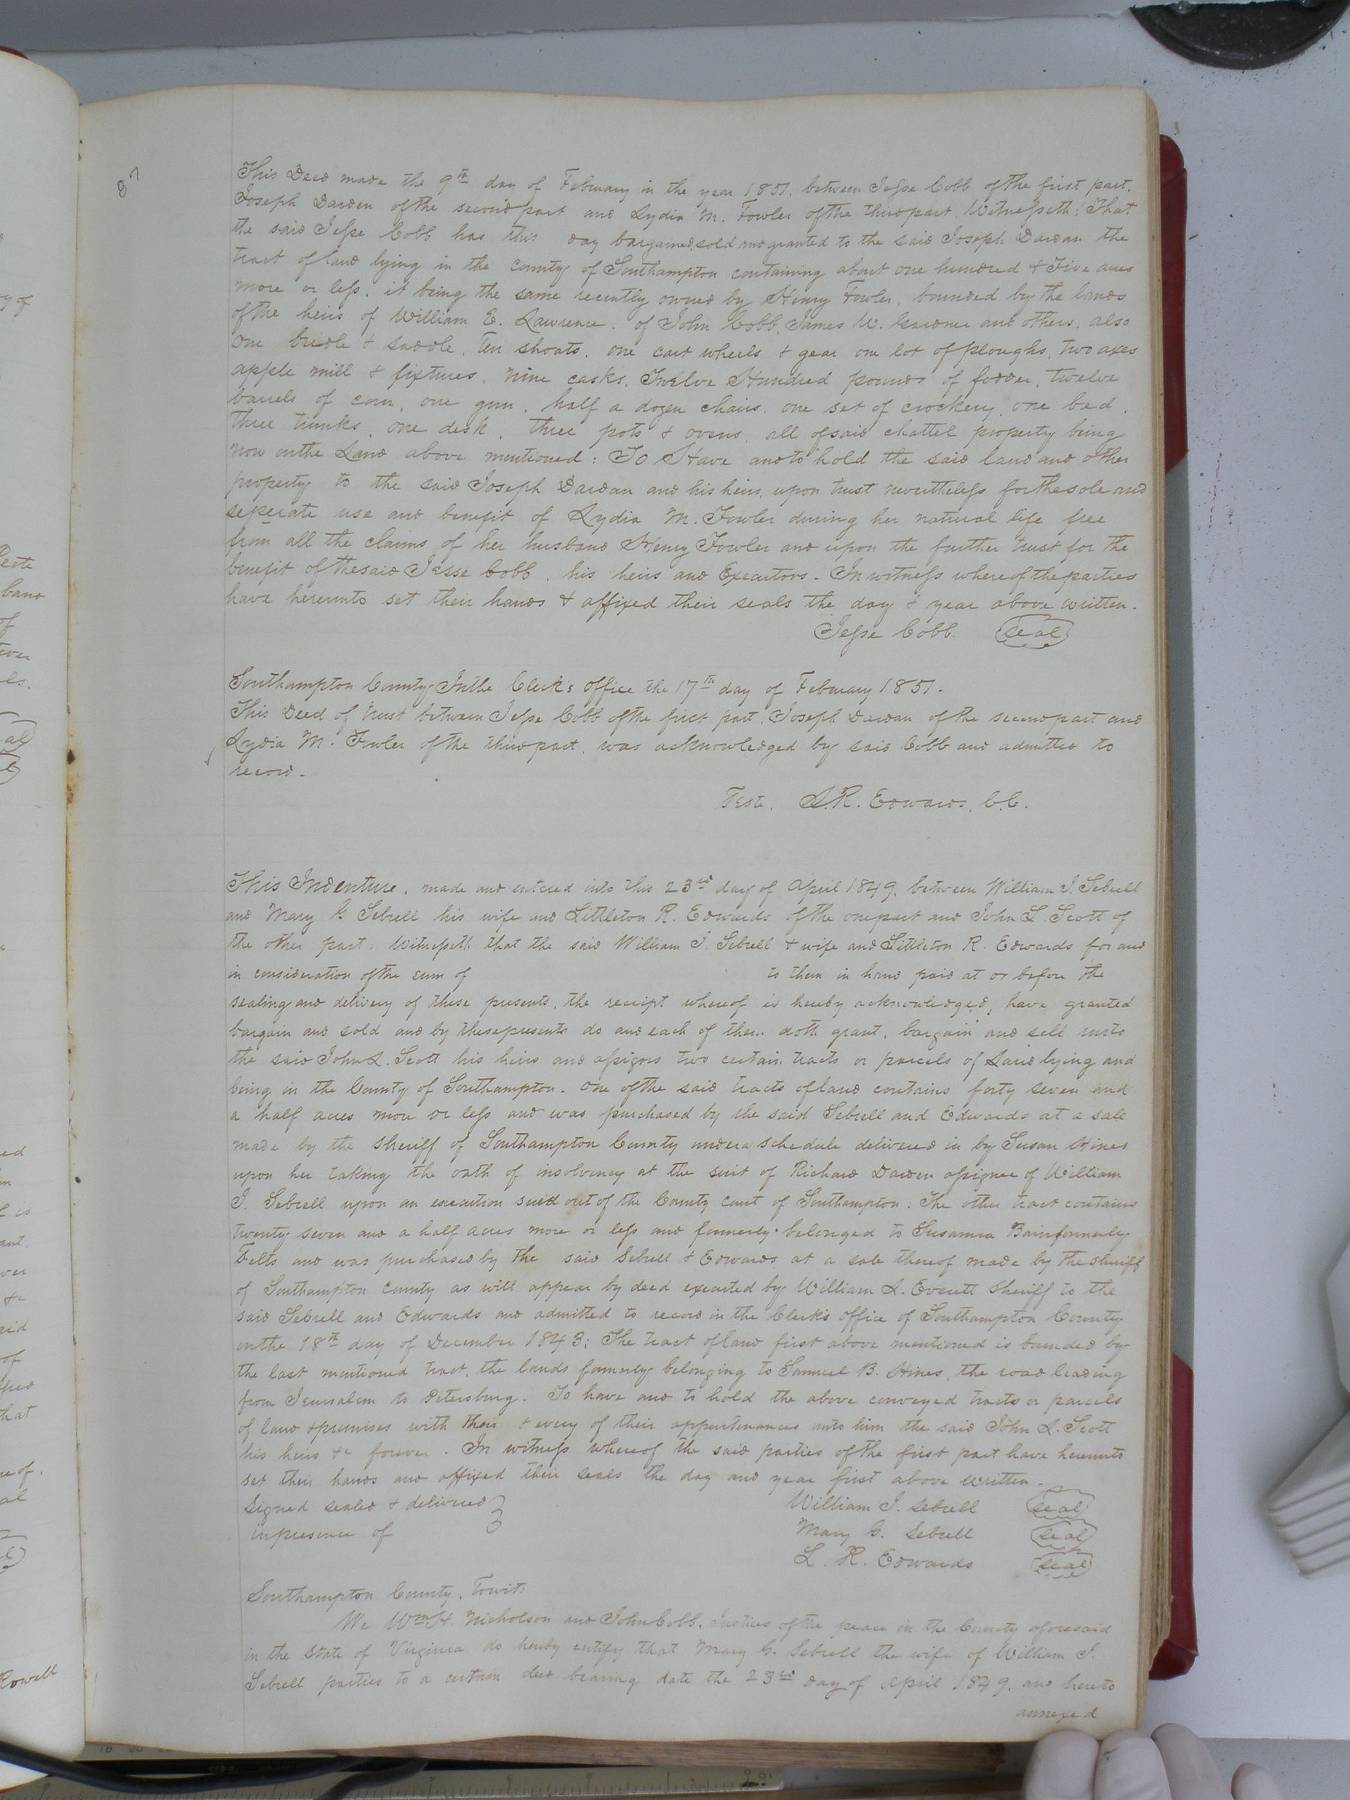 87
This Deed made the 9th day of February in the year 1851. between Jesse Cobb of the first part.
Joseph Darden of the second part and Lydia M. Fowler of the third part. Witnesseth: That
the said Jesse Cobb has this day bargained sold and granted to the said Joseph Darden the
tract of land lying in the county of Southampton containing about one hundred & Five acres
more or less. it being the same recently owned by Henry Fowler, bounded by the lands
of the heirs of William E. Lawrence. of John Cobb, James W. and others. also
one bridle & saddle, Ten shoats. one cart wheels & gear one lot of ploughs, two axes
apple mill & fixtures, nine casks, Twelve Hundred pounds of fodder, twelve
barrels of corn, one gun, half a dozen chairs. one set of crockery, one bed,
three trunks, one desk, three pots & ovens, all of said chattel property being
now on the Land above mentioned: To Have and to hold the said land and other
property to the said Joseph Darden and his heirs, upon trust nevertheless for the sole and
seperate use and benefit of Lydia M. Fowler during her natural life free
from all the claims of her husband Henry Fowler and upon the further trust for the
benefit of the said Jesse Cobb, his heirs and Executors. In witness whereof the parties
have hereunto set their hands & affixed their seals the day & year above written.
Jesse Cobb. seal
Southampton County In the Clerk's office the 17th day of February 1851.
This Deed of trust between Jesse Cobb of the first part, Joseph Darden of the second part and
Lydia M. Fowler of the third part, was acknowledged by said Cobb and admitted to
record.
Teste. L.R. Edwards, C.C.
This Indenture, made and entered into this 23rd day of April 1849, between William J. Sebrell
and Mary G. Sebrell his wife and Littleton R. Edwards of the one part and John L. Scott of
the other part: Witnesseth that the said William J. Sebrell & wife and Littleton R. Edwards for and
in consideration of the sum of to them in hand paid at or before the
sealing and delivery of these presents, the receipt whereof is hereby acknowledged, have granted
bargain and sold and by these presents do and each of them doth grant, bargain and sell unto
the said John L. Scott his heirs and assigns two certain tracts or parcels of Land lying and
being in the County of Southampton. One of the said tracts of land contains forty seven and
a half acres more or less and was purchased by the said Sebrell and Edwards at a sale
made by the Sheriff of Southampton County under a schedule delivered in by Susan Hines
upon her taking the oath of insolvency at the suit of Richard Darden assignee of William
J. Sebrell upon an execution sued out of the County court of Southampton: The other tract contains
twenty seven and a half acres more or less and formerly belonged to Susanna Bain formerly
Felts and was purchased by the said Sebrell & Edwards at a sale thereof made by the sheriff
of Southampton County as will appear by deed executed by William L. Everett Sheriff to the
said Sebrell and Edwards and admitted to record in the Clerk's office of Southampton County
on the 18th day of December 1843: The tract of land first above mentioned is bounded by
the last mentioned tract, the lands formerly belonging to Samuel B. Hines, the road leading
from Jerusalem to Petersburg. To have and to hold the above conveyed tracts or parcels
of land & premises with their & every of their appurtenances unto him the said John L. Scott
his heirs &c forever. In witness whereof the said parties of the first part have hereunto
set their hands and affixed their seals the day and year first above written.
Signed sealed & delivered William J. Sebrell seal
in presence of Mary G. Sebrell seal
L. R. Edwards seal
Southampton County, Towit:
We Wm H. Nicholson and John Cobb, Justices of the peace in the County aforesaid
in the State of Virginia do hereby certify that Mary G. Sebrell the wife of William J.
Sebrell parties to a certain deed bearing date the 23rd day of April 1849, and hereto
annexed